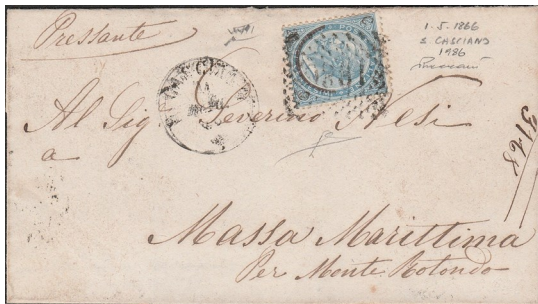 Pressante
1.5.1866
S. CASCIANO
1986
Al Sig Severino Nesi
a
Massa Marittima
Per Monte Rotondo
3168